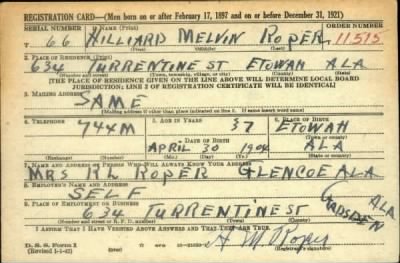 REGISTRATION CARD—(Men born on or after February 17, 1897 and on or before December 31, 1921)
SERIAL NUMBER 1. NAME (Print) ORDER NUMBER
T 66 HILLIARD MELVIN ROPER 11515
(First) (Middle) (Last)
2. PLACE OF RESIDENCE (Print)
634 TURRENTINE ST ETOWAH ALA
(Number and street) (Town, township, village, or city) (County) (State)
[THE PLACE OF RESIDENCE GIVEN ON THE LINE ABOVE WILL DETERMINE LOCAL BOARD
JURISDICTION; LINE 2 OF REGISTRATION CERTIFICATE WILL BE IDENTICAL]
3. MAILING ADDRESS
SAME
[Mailing address if other than place indicated on line 2. If same insert word same]
4. TELEPHONE 5. AGE IN YEARS 6. PLACE OF BIRTH
744M 37 ETOWAH
DATE OF BIRTH (Town or county)
APRIL 30 1904 ALA
(Exchange) (Number) (Mo.) (Day) (Yr.) (State or country)
7. NAME AND ADDRESS OF PERSON WHO WILL ALWAYS KNOW YOUR ADDRESS
MRS R L ROPER GLENCOE ALA
8. EMPLOYER'S NAME AND ADDRESS
SELF
9. PLACE OF EMPLOYMENT OR BUSINESS
634 TURRENTINE ST GADSDEN ALA
(Number and street or R. F. D. number) (Town) (County) (State)
I AFFIRM THAT I HAVE VERIFIED ABOVE ANSWERS AND THAT THEY ARE TRUE.
D. S. S. Form 1
(Revised 1-1-42) H M Roper
(Registrant's signature)